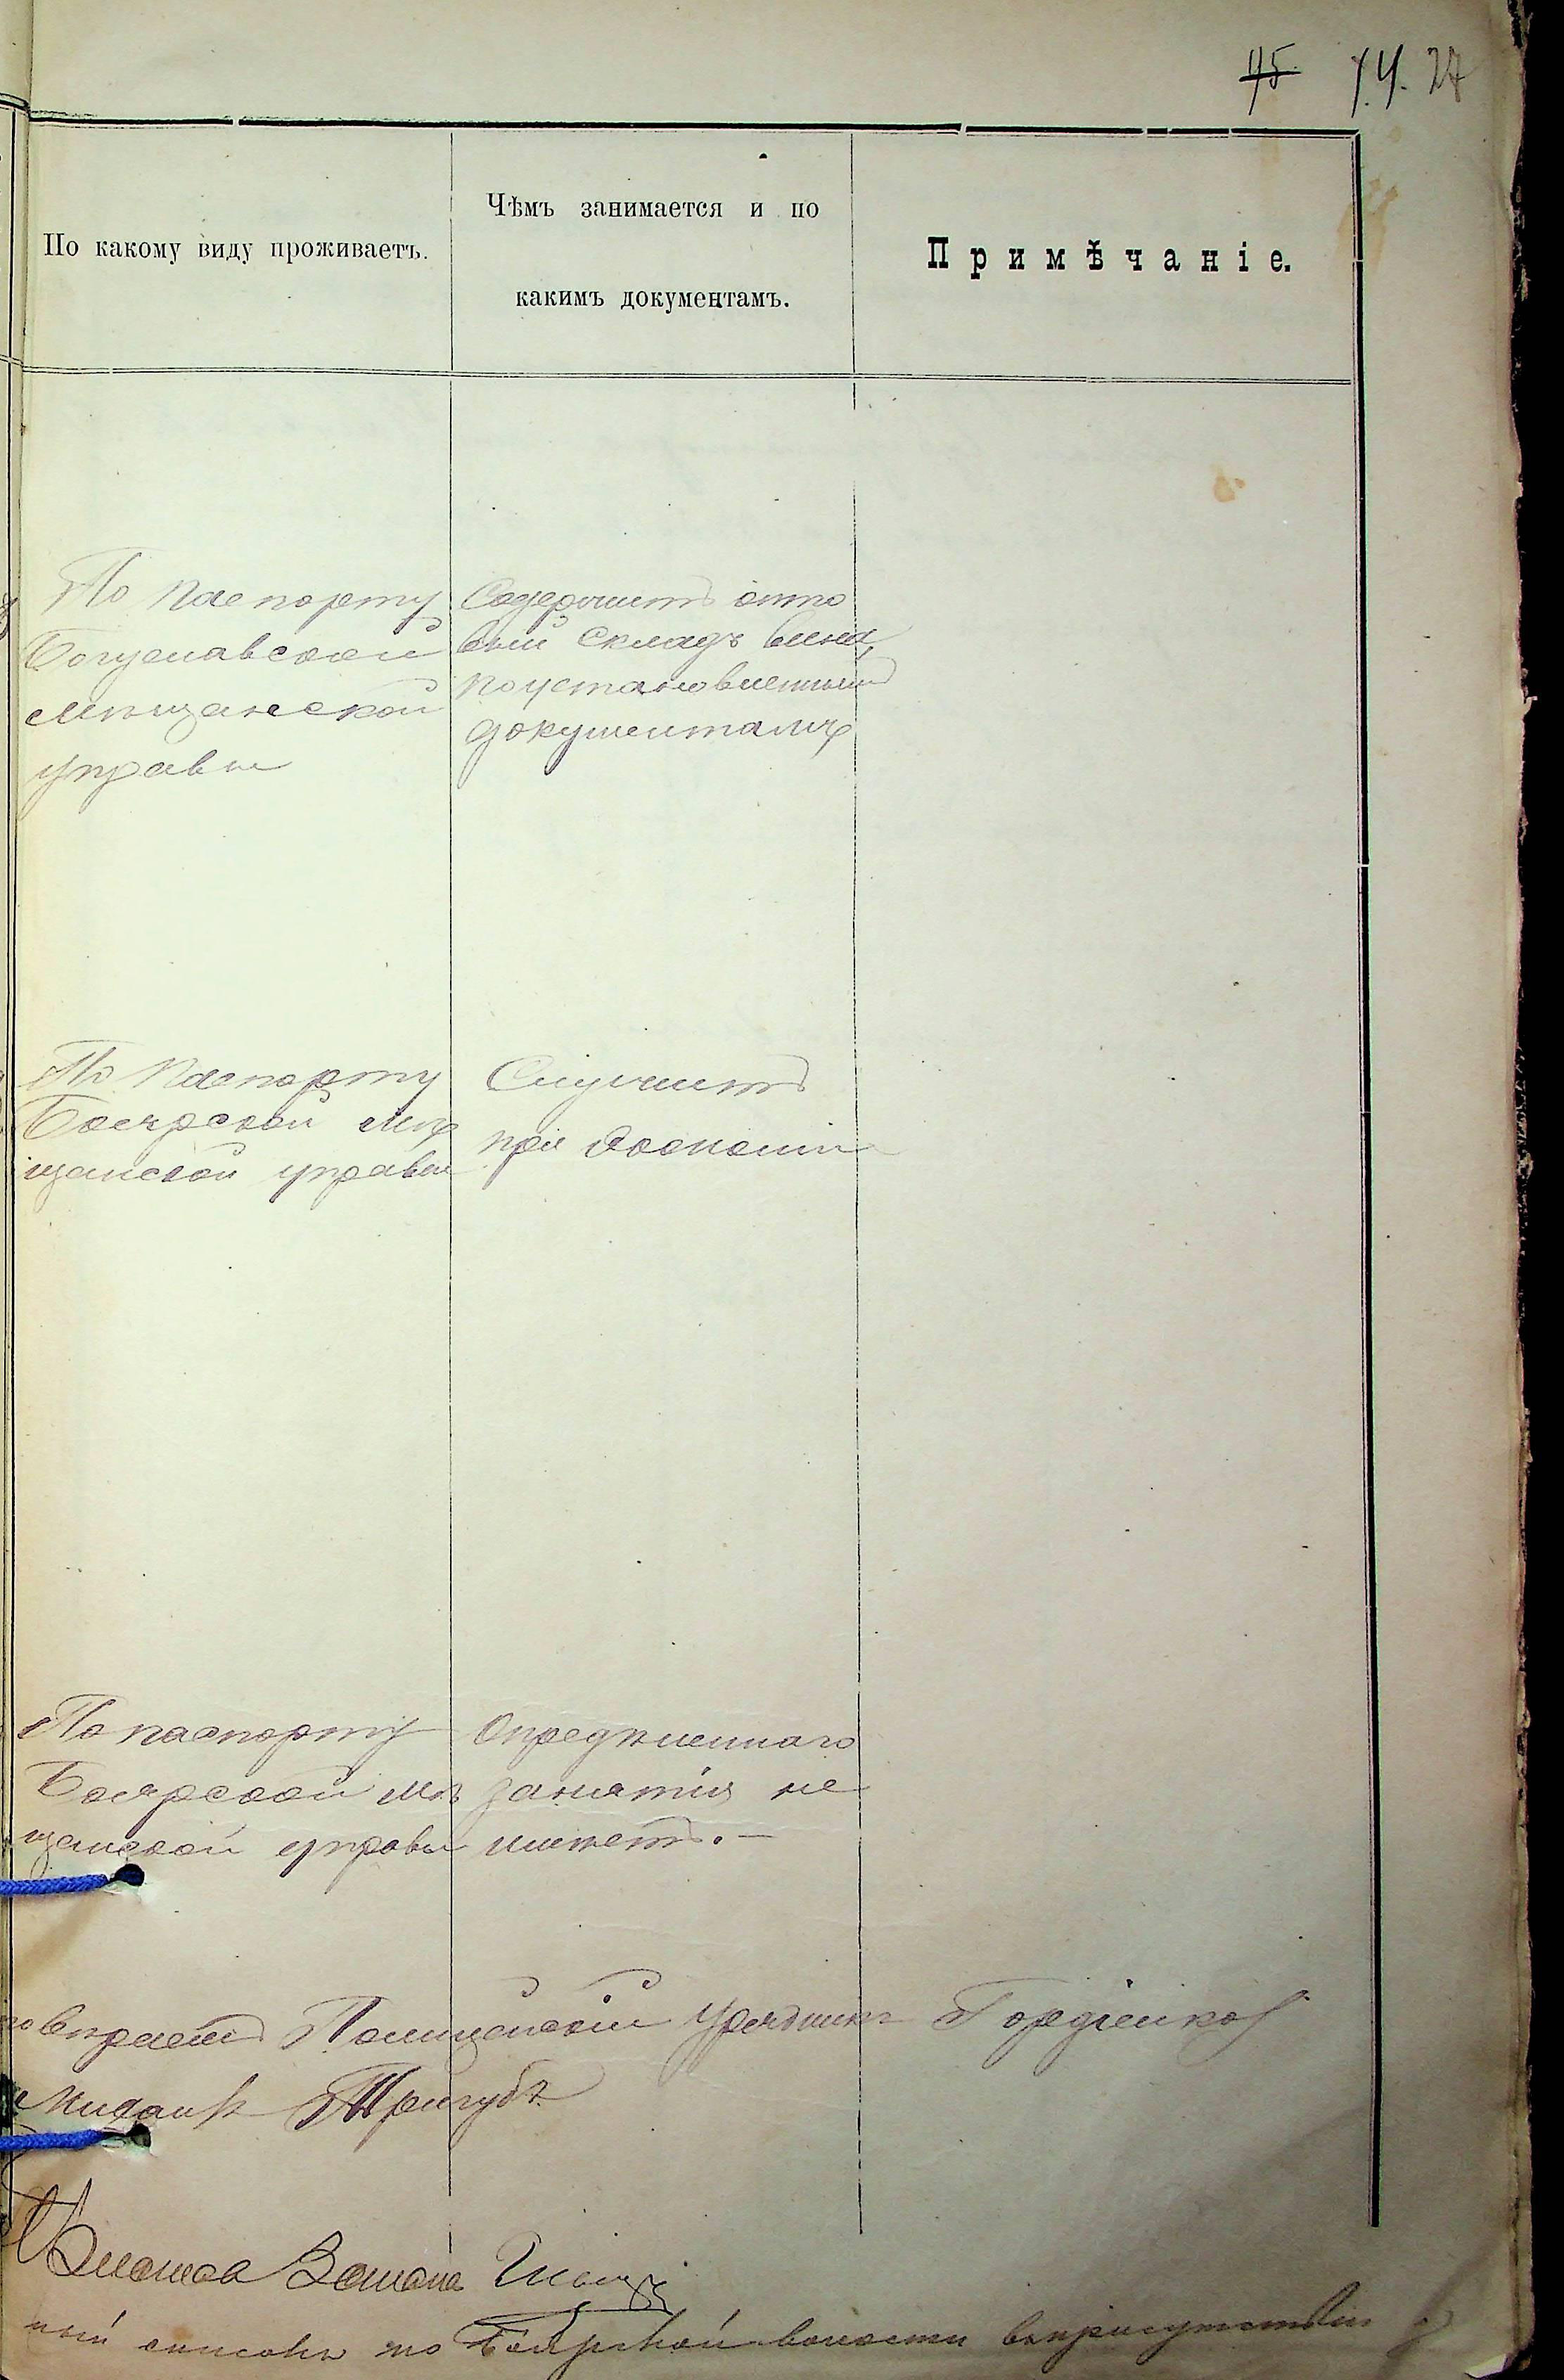 75 74. 27
По какому виду проживаетъ.
Чѣмъ занимается и по
какимъ документамъ.
Примѣчаніе.
По паспорту
Богуславской
мѣщанской
управы
Содержитъ опто
вый складъ вина,
по установленнымъ
документамъ
По паспорту
Боярской мѣ
щанской управы
Служитъ
при экономіи
По паспорту
Боярской мѣ
щанской управы
Опредѣленнаго
занятія не
имѣетъ. —
Полицейскій Урядникъ Гордіенко
Тригубъ
ный списокъ по Боярской волости въ присутствіи